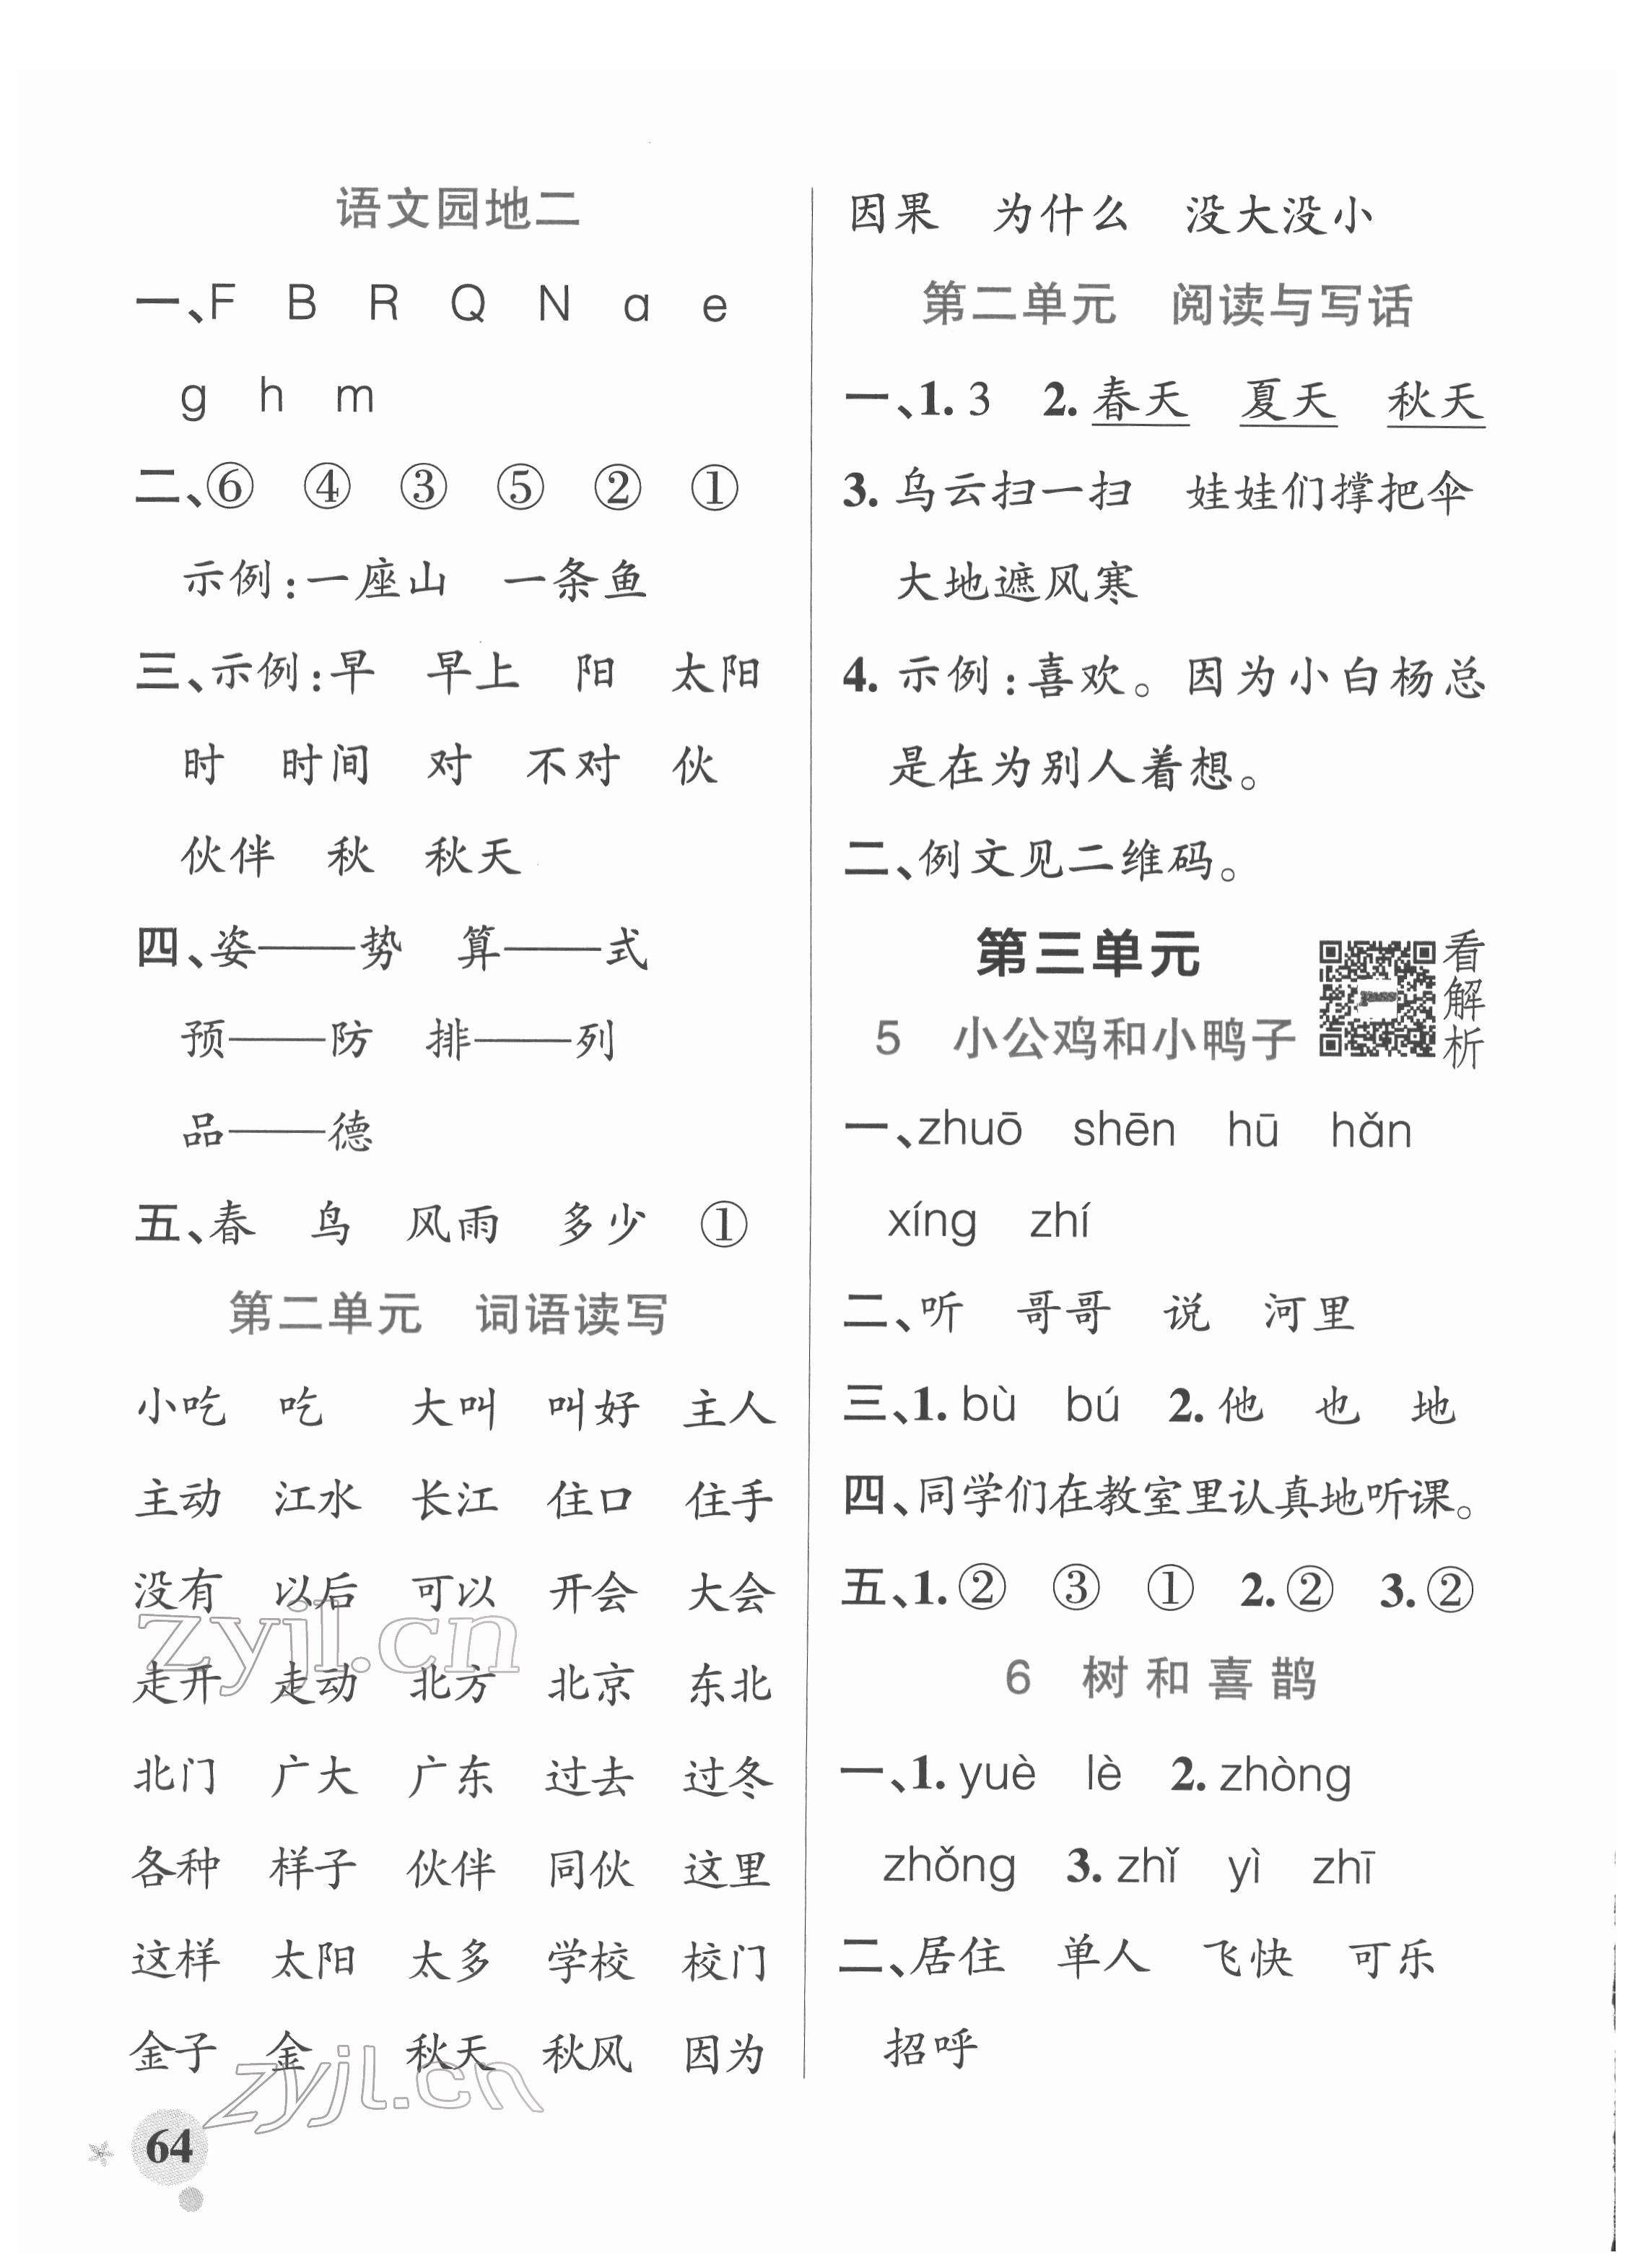 语文园地二
一、F B R Q N ɑ e
g h m
二、⑥ ④ ③ ⑤ ② ①
示例:一座山 一条鱼
三、示例:早 早上 阳 太阳
时 时间 对 不对 伙
伙伴 秋 秋天
四、姿——势 算——式
预——防 排——列
品——德
五、春 鸟 风雨 多少 ①
第二单元 词语读写
小吃 吃 大叫 叫好 主人
主动 江水 长江 住口 住手
没有 以后 可以 开会 大会
走开 走动 北方 北京 东北
北门 广大 广东 过去 过冬
各种 样子 伙伴 同伙 这里
这样 太阳 太多 学校 校门
金子 金 秋天 秋风 因为
64
因果 为什么 没大没小
第二单元 阅读与写话
一、1. 3 2. 春天 夏天 秋天
3. 乌云扫一扫 娃娃们撑把伞
大地遮风寒
4. 示例:喜欢。因为小白杨总
是在为别人着想。
二、例文见二维码。
第三单元
看解析
5 小公鸡和小鸭子
一、zhuō shēn hū hǎn
xíng zhí
二、听 哥哥 说 河里
三、1. bù bú 2. 他 也 地
四、同学们在教室里认真地听课。
五、1. ② ③ ① 2. ② 3. ②
6 树和喜鹊
一、1. yuè lè 2. zhòng
zhǒng 3. zhǐ yì zhī
二、居住 单人 飞快 可乐
招呼
zyjl.cn
zyjl.cn